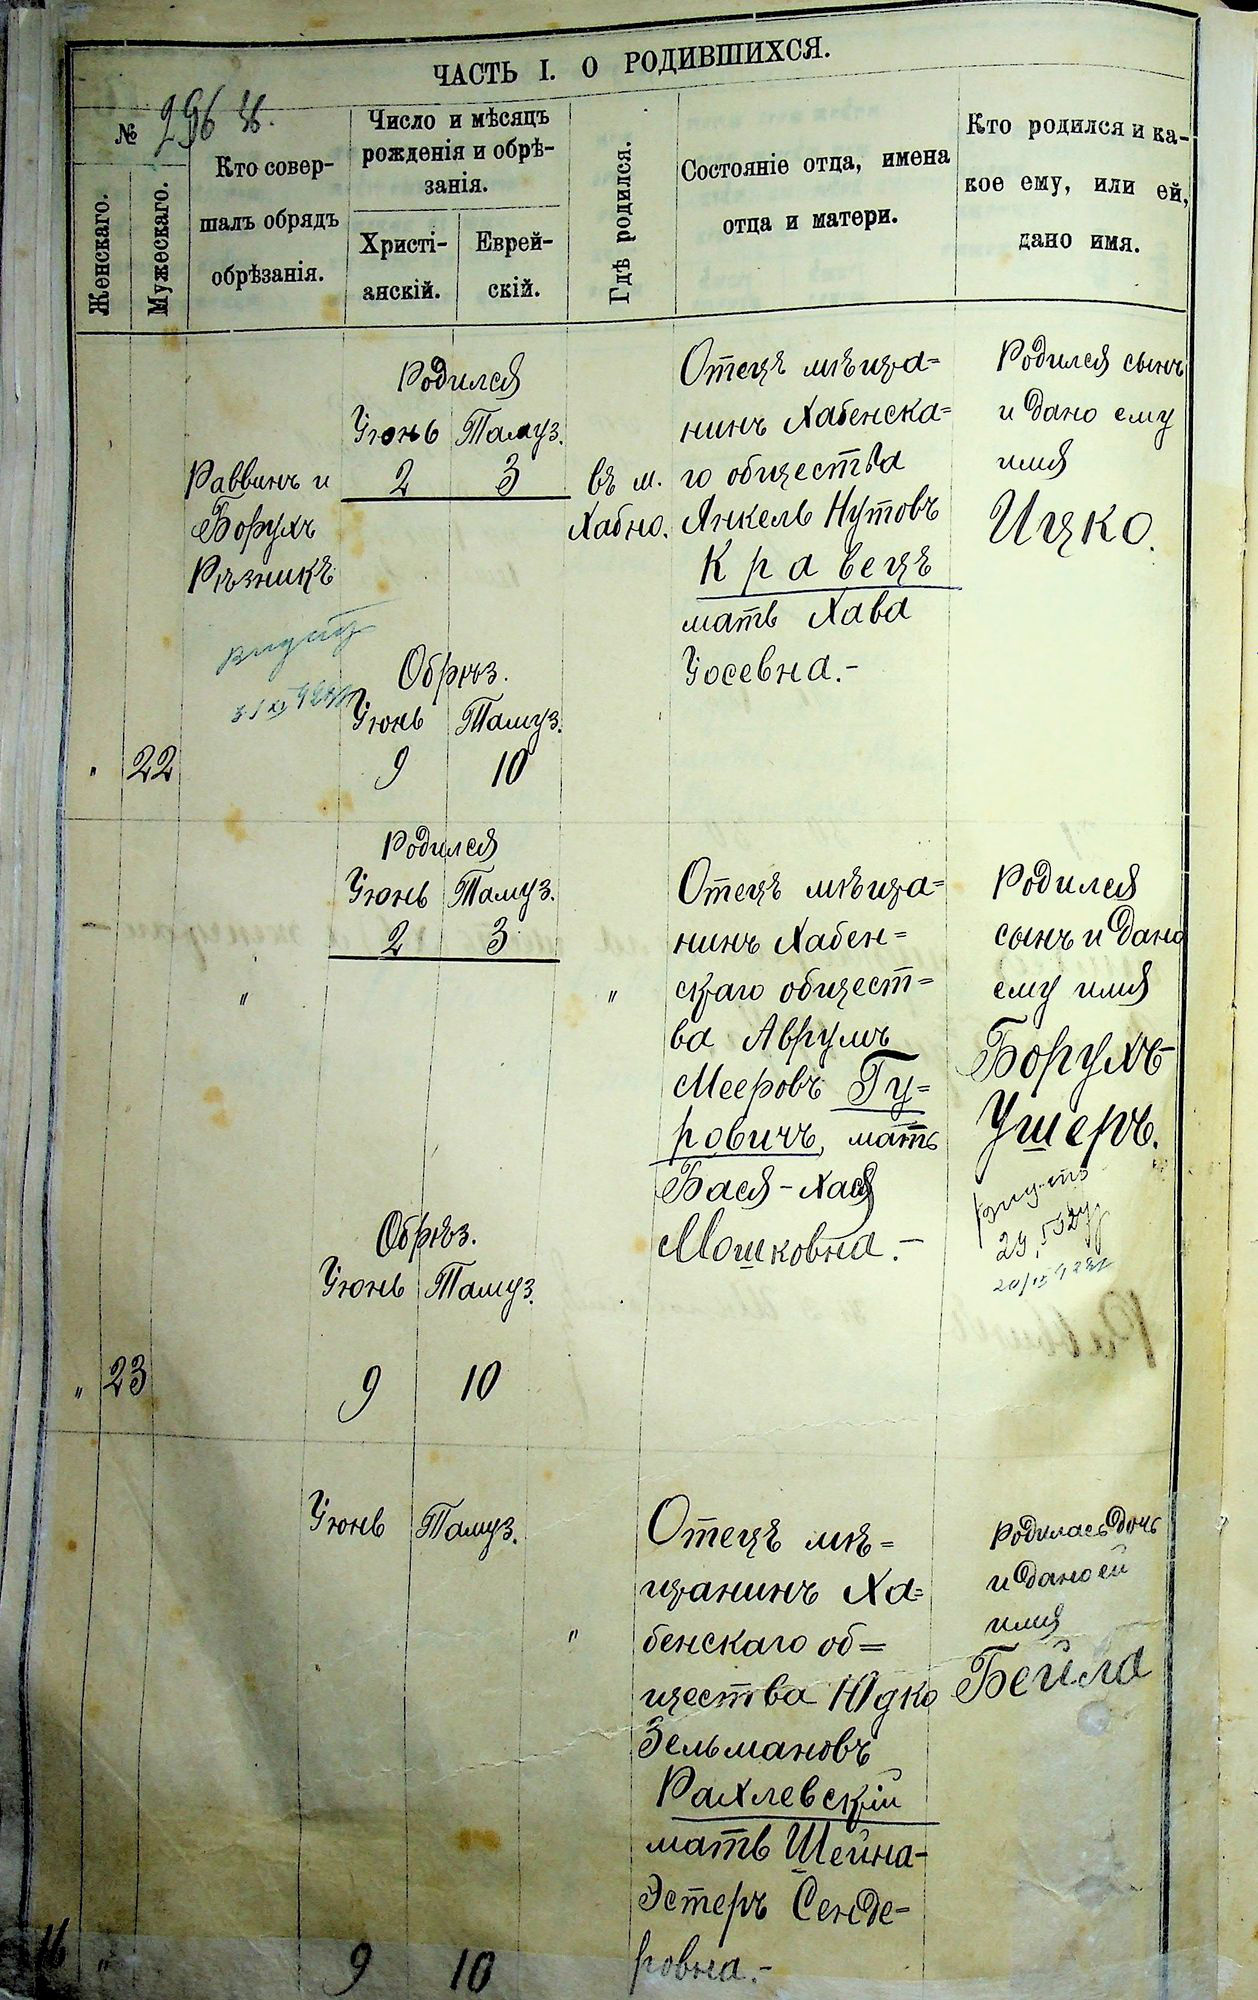 ЧАСТЬ I. О РОДИВШИХСЯ.
№ 296
Женскаго.
Мужескаго.
Кто совер-
шалъ обрядъ
обрѣзанія.
Число и мѣсяцъ
рожденія и обрѣ-
занія.
Христі-
анскій.
Еврей-
скій.
Гдѣ родился.
Состояніе отца, имена
отца и матери.
Кто родился и ка-
кое ему, или ей,
дано имя.
" 22
Раввинъ и
Борухъ
Рѣзникъ
Родился
Іюнь Тамуз.
2 3
Обрѣз.
Іюнь Тамуз.
9 10
въ м.
Хабно.
Отецъ мѣща=
нинъ Хабенска=
го общества
Янкель Нутовъ
Кравецъ
мать Хава
Іосевна.-
Родился сынъ
и дано ему
имя
Ицко.
" 23
"
Родился
Іюнь Тамуз.
2 3
Обрѣз.
Іюнь Тамуз.
9 10
"
Отецъ мѣща=
нинъ Хабен=
скаго общест=
ва Аврумъ
Мееровъ Гу=
ровичъ, мать
Бася-Хася
Мошковна.-
Родился
сынъ и дано
ему имя
Борухъ-
Ушеръ.
16 "
Іюнь Тамуз.
9 10
"
Отецъ мѣ=
щанинъ Ха=
бенскаго об=
щества Юдко
Зельмановъ
Рахлевскій
мать Шейна-
Эстеръ Сенде-
ровна.-
Родилась дочь
и дано ей
имя
Бейла